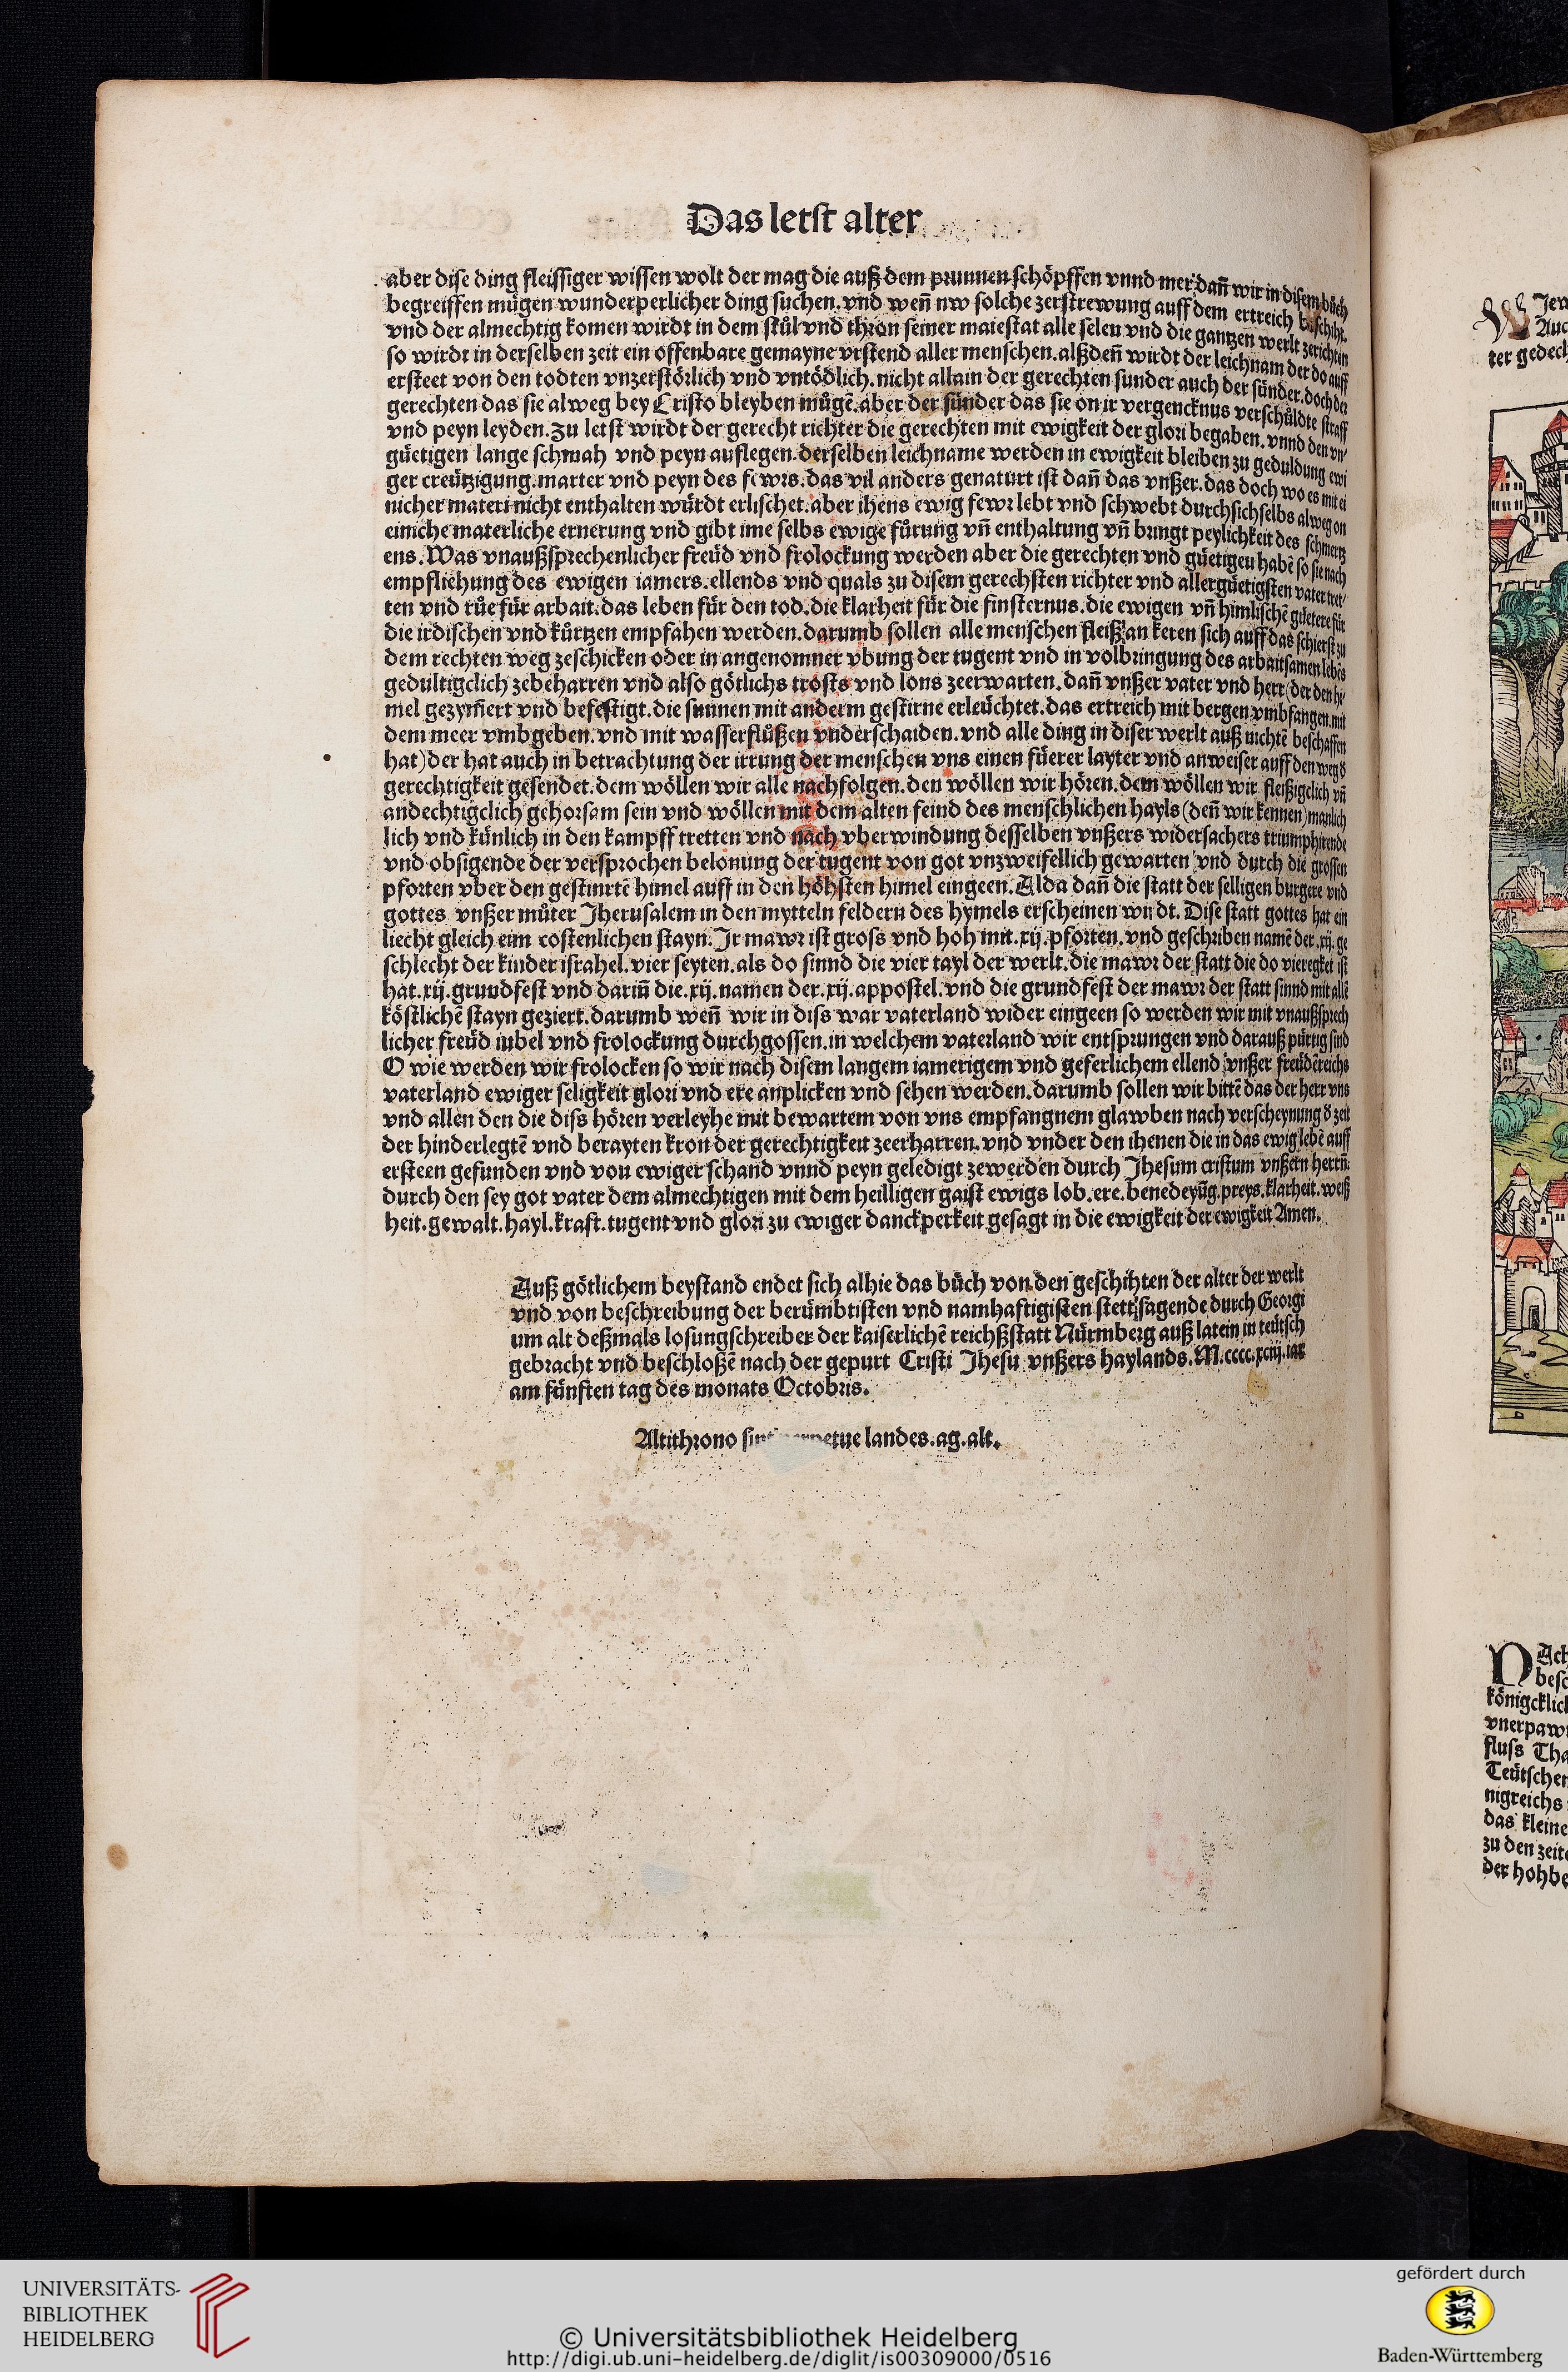 Das letst alter
aber dise ding fleissiger wissen wolt der mag die auß dem prunnen schöpffen vnnd mer dañ wir in disem bůch
begreiffen mügen wunderperlicher ding suchen. vnd weñ nw solche zerstrewung auff dem ertreich beschiht.
vnd der almechtig komen wirdt in dem stůl vnd thron seiner maiestat alle selen vnd die gantzen werlt zerichten
so wirdt in derselben zeit ein offenbare gemayne vrstend aller menschen. alßdeñ wirdt der leichnam der do auff
ersteet von den todten vnzerstörlich vnd vntödlich. nicht allain der gerechten sunder auch der sünder. doch der
gerechten das sie alweg bey Cristo bleyben můgē. aber der sünder das sie on ir vergencknus verschůldte straff
vnd peyn leyden. Zu letst wirdt der gerecht richter die gerechten mit ewigkeit der glori begaben. vnnd den vn
güetigen lange schmah vnd peyn auflegen. derselben leichname werden in ewigkeit bleiben zu geduldung ewi
ger creützigung. marter vnd peyn des fewrs. das vil anders genaturt ist dañ das vnßer. das doch wo es mit ei
nicher materi nicht enthalten würdt erlischet. aber ihens ewig fewr lebt vnd schwebt durch sich selbs alweg on
einiche materliche ernerung vnd gibt ime selbs ewige fůrung vñ enthaltung vñ bringt peylichkeit des schmertz
ens. Was vnaußsprechenlicher freüd vnd frolockung werden aber die gerechten vnd güetigen habē so sie nach
empfliehung des ewigen iamers. ellends vnd quals zu disem gerechsten richter vnd allergüetigsten vater tret
ten vnd růe für arbait. das leben für den tod. die klarheit für die finsternus. die ewigen vñ himlischē güetere für
die irdischen vnd kürtzen empfahen werden. darumb sollen alle menschen fleiß an keren sich auff das schierst zu
dem rechten weg zeschicken oder in angenomner vbung der tugent vnd in volbringung des arbaitsamen lebēs
gedultigclich zebeharren vnd also götlichs trosts vnd lons zeerwarten. dañ vnßer vater vnd herr (der den hi
mel gezymert vnd befestigt. die sunnen mit anderm gestirne erleüchtet. das ertreich mit bergen vmbfangen. mit
dem meer vmbgeben. vnd mit wasserflůßen vnderschaiden. vnd alle ding in diser werlt auß nichtē beschaffen
hat) der hat auch in betrachtung der irrung der menschen vns einen füerer layter vnd anweiser auff den weg d
gerechtigkeit gesendet. dem wöllen wir alle nachfolgen. den wöllen wir hören. dem wöllen wir fleißigclich vñ
andechtigclich gehorsam sein vnd wöllen mit dem alten feind des menschlichen hayls (deñ wir kennen) manlich
lich vnd künlich in den kampff tretten vnd nach vberwindung desselben vnßers widersachers triumphirende
vnd obsigende der versprochen belonung der tugent von got vnzweifellich gewarten vnd durch die grossen
pforten vber den gestinrtē himel auff in den höhsten himel eingeen. Alda dañ die statt der selligen burgere vnd
gottes vnßer můter Jherusalem in den mytteln feldern des hymels erscheinen wirdt. Dise statt gottes hat ein
liecht gleich eim costenlichen stayn. Jr mawr ist gross vnd hoh mit .xij. pforten. vnd geschriben namē der .xij. ge
schlecht der kinder israhel. vier seyten. als do sinnd die vier tayl der werlt. die mawr der statt die do vieregket ist
hat .xij. grundfest vnd dariñ die .xij. namen der .xij. appostel. vnd die grundfest der mawr der statt sinnd mit allē
köstlichē stayn geziert. darumb weñ wir in diss war vaterland wider eingeen so werden wir mit vnaußsprech
licher freüd iubel vnd frolockung durchgossen. in welchem vaterland wir entsprungen vnd darauß pürtig sind
O wie werden wir frolocken so wir nach disem langem iamerigem vnd geferlichem ellend vnßer freüdēreichs
vaterland ewiger seligkeit glori vnd ere anplicken vnd sehen werden. darumb sollen wir bittē das der herr vns
vnd allen den die diss hören verleyhe mit bewartem von vns empfangnem glawben nach verscheynung d zeit
der hinderlegtē vnd berayten kron der gerechtigkeit zeerharren. vnd vnder den ihenen die in das ewig lebē auff
ersteen gefunden vnd von ewiger schand vnnd peyn geledigt zewerden durch Jhesum cristum vnßern herrñ.
durch den sey got vater dem almechtigen mit dem heilligen gaist ewigs lob. ere. benedeyūg. preys. klarheit. weiß
heit. gewalt. hayl. kraft. tugent vnd glori zu ewiger danckperkeit gesagt in die ewigkeit der ewigkeit Amen.
Auß götlichem beystand endet sich alhie das bůch von den geschihten der alter der werlt
vnd von beschreibung der berümbtisten vnd namhaftigisten stett. sagende durch Georgi
um alt deßmals losungschreiber der kaiserlichē reichßstatt Nürmberg auß latein in teütsch
gebracht vnd beschloßē nach der gepurt Cristi Jhesu vnßers haylands. M.cccc.xciij. iar
am fünften tag des monats Octobris.
Altithrono sint perpetue landes. ag. alt.
Auc
ter gedech
NAch
besc
königcklich
vnerpaw
fluss Tha
Teütschen
nigreichs
das kleine
zu den zeite
der hohbe
UNIVERSITÄTS-
BIBLIOTHEK
HEIDELBERG
© Universitätsbibliothek Heidelberg
http://digi.ub.uni-heidelberg.de/diglit/is00309000/0516
gefördert durch
Baden-Württemberg